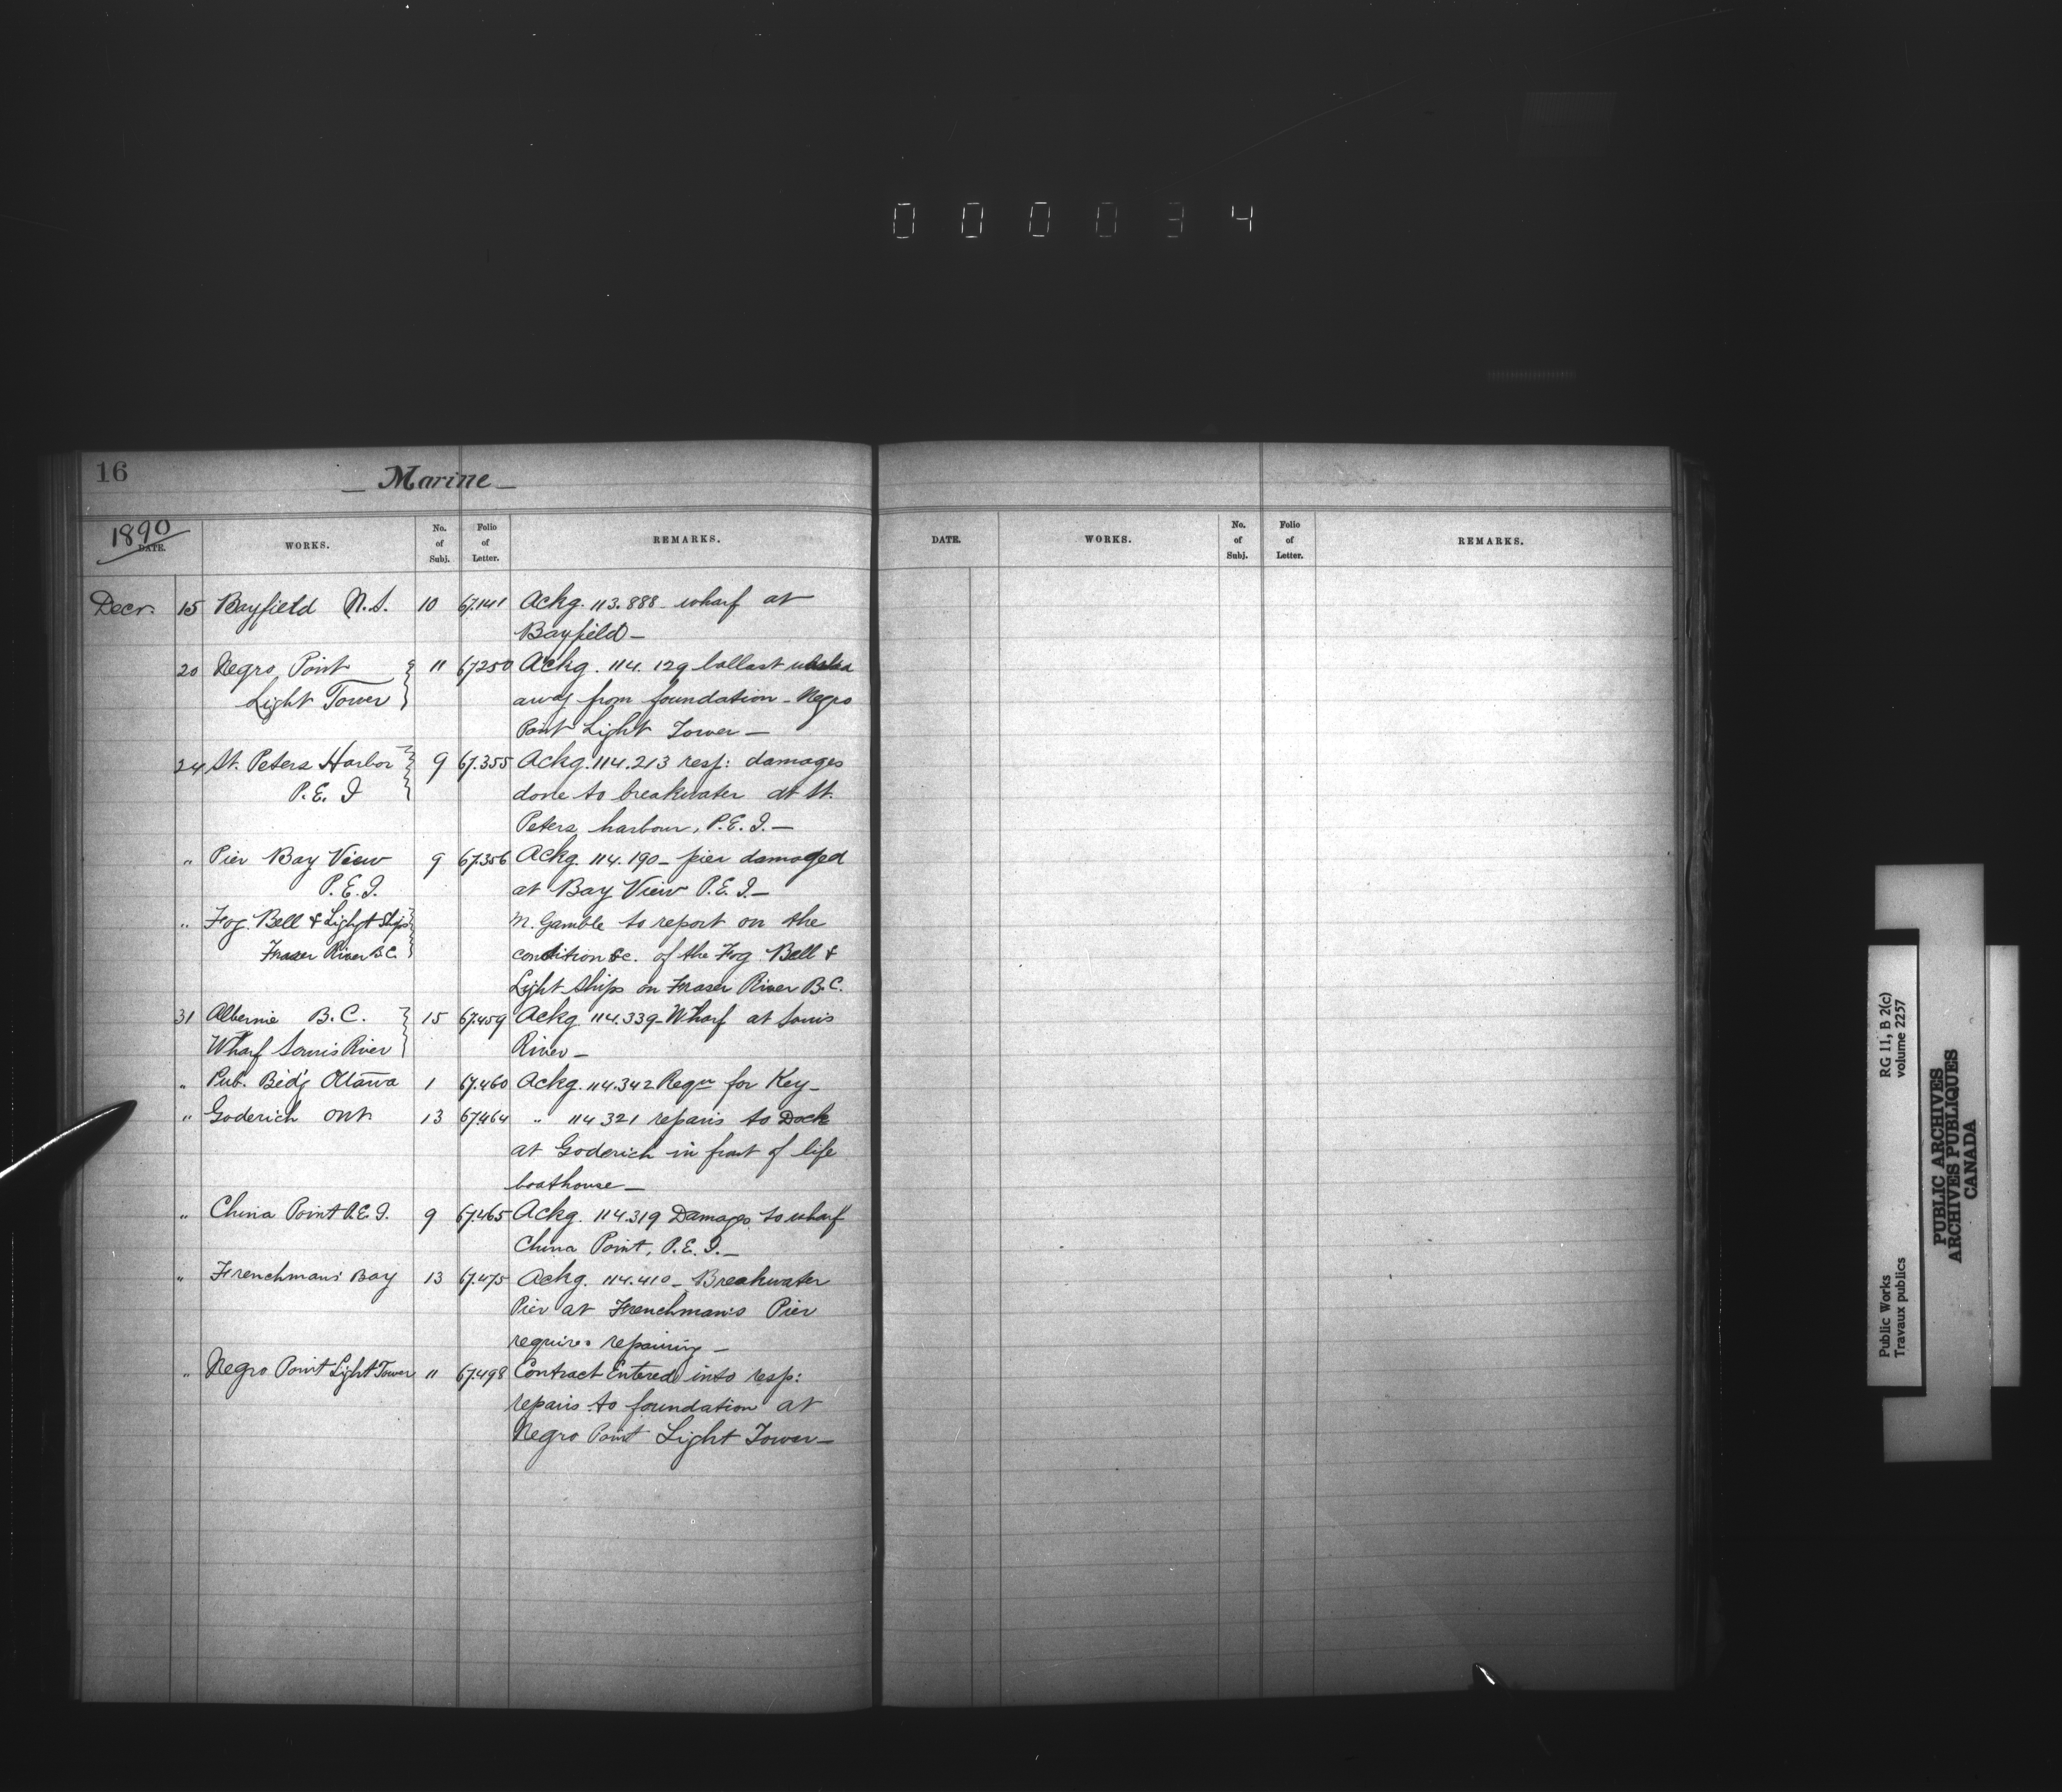 000034
16 — Marine —
1890
DATE. WORKS. No. of Subj. Folio of Letter. REMARKS.
DATE. WORKS. No. of Subj. Folio of Letter. REMARKS.
Decr. 15 Bayfield N.S. 10 67.141 Ackg. 113.888 - wharf at
Bayfield —
20 Negro Point 11 67250 Ackg. 114.129 ballast washed
Light Tower away from foundation - Negro
Point Light Tower —
24 St. Peters Harbor 9 67.355 Ackg. 114.213 resp: damages
P.E.I done to breakwater at St.
Peters harbour, P.E.I. —
" Pier Bay View 9 67.356 Ackg. 114.190 - pier damaged
P.E.I. at Bay View P.E.I. —
" Fog Bell & Light Ships M. Gamble to report on the
Fraser River B.C. condition &c. of the Fog Bell &
Light Ships on Fraser River B.C.
31 Albernie B.C. 15 67.459 Ackg. 114.339 - Wharf at Somis
Wharf Somis River River —
" Pub. Bld'g Ottawa 1 67.460 Ackg. 114.342 Reqn for Key —
" Goderich Ont 13 67.464 " 114321 repairs to Dock
at Goderich in front of life
boathouse —
" China Point P.E.I. 9 67.465 Ackg. 114.319 Damages to wharf
China Point, P.E.I. —
" Frenchman's Bay 13 67.475 Ackg. 114.410 - Breakwater
Pier at Frenchman's Pier
requires repairing —
" Negro Point Light Tower 11 67.498 Contract Entered into resp:
repairs to foundation at
Negro Point Light Tower —
Public Works RG 11, B 2(c)
Travaux publics volume 2257
PUBLIC ARCHIVES
ARCHIVES PUBLIQUES
CANADA